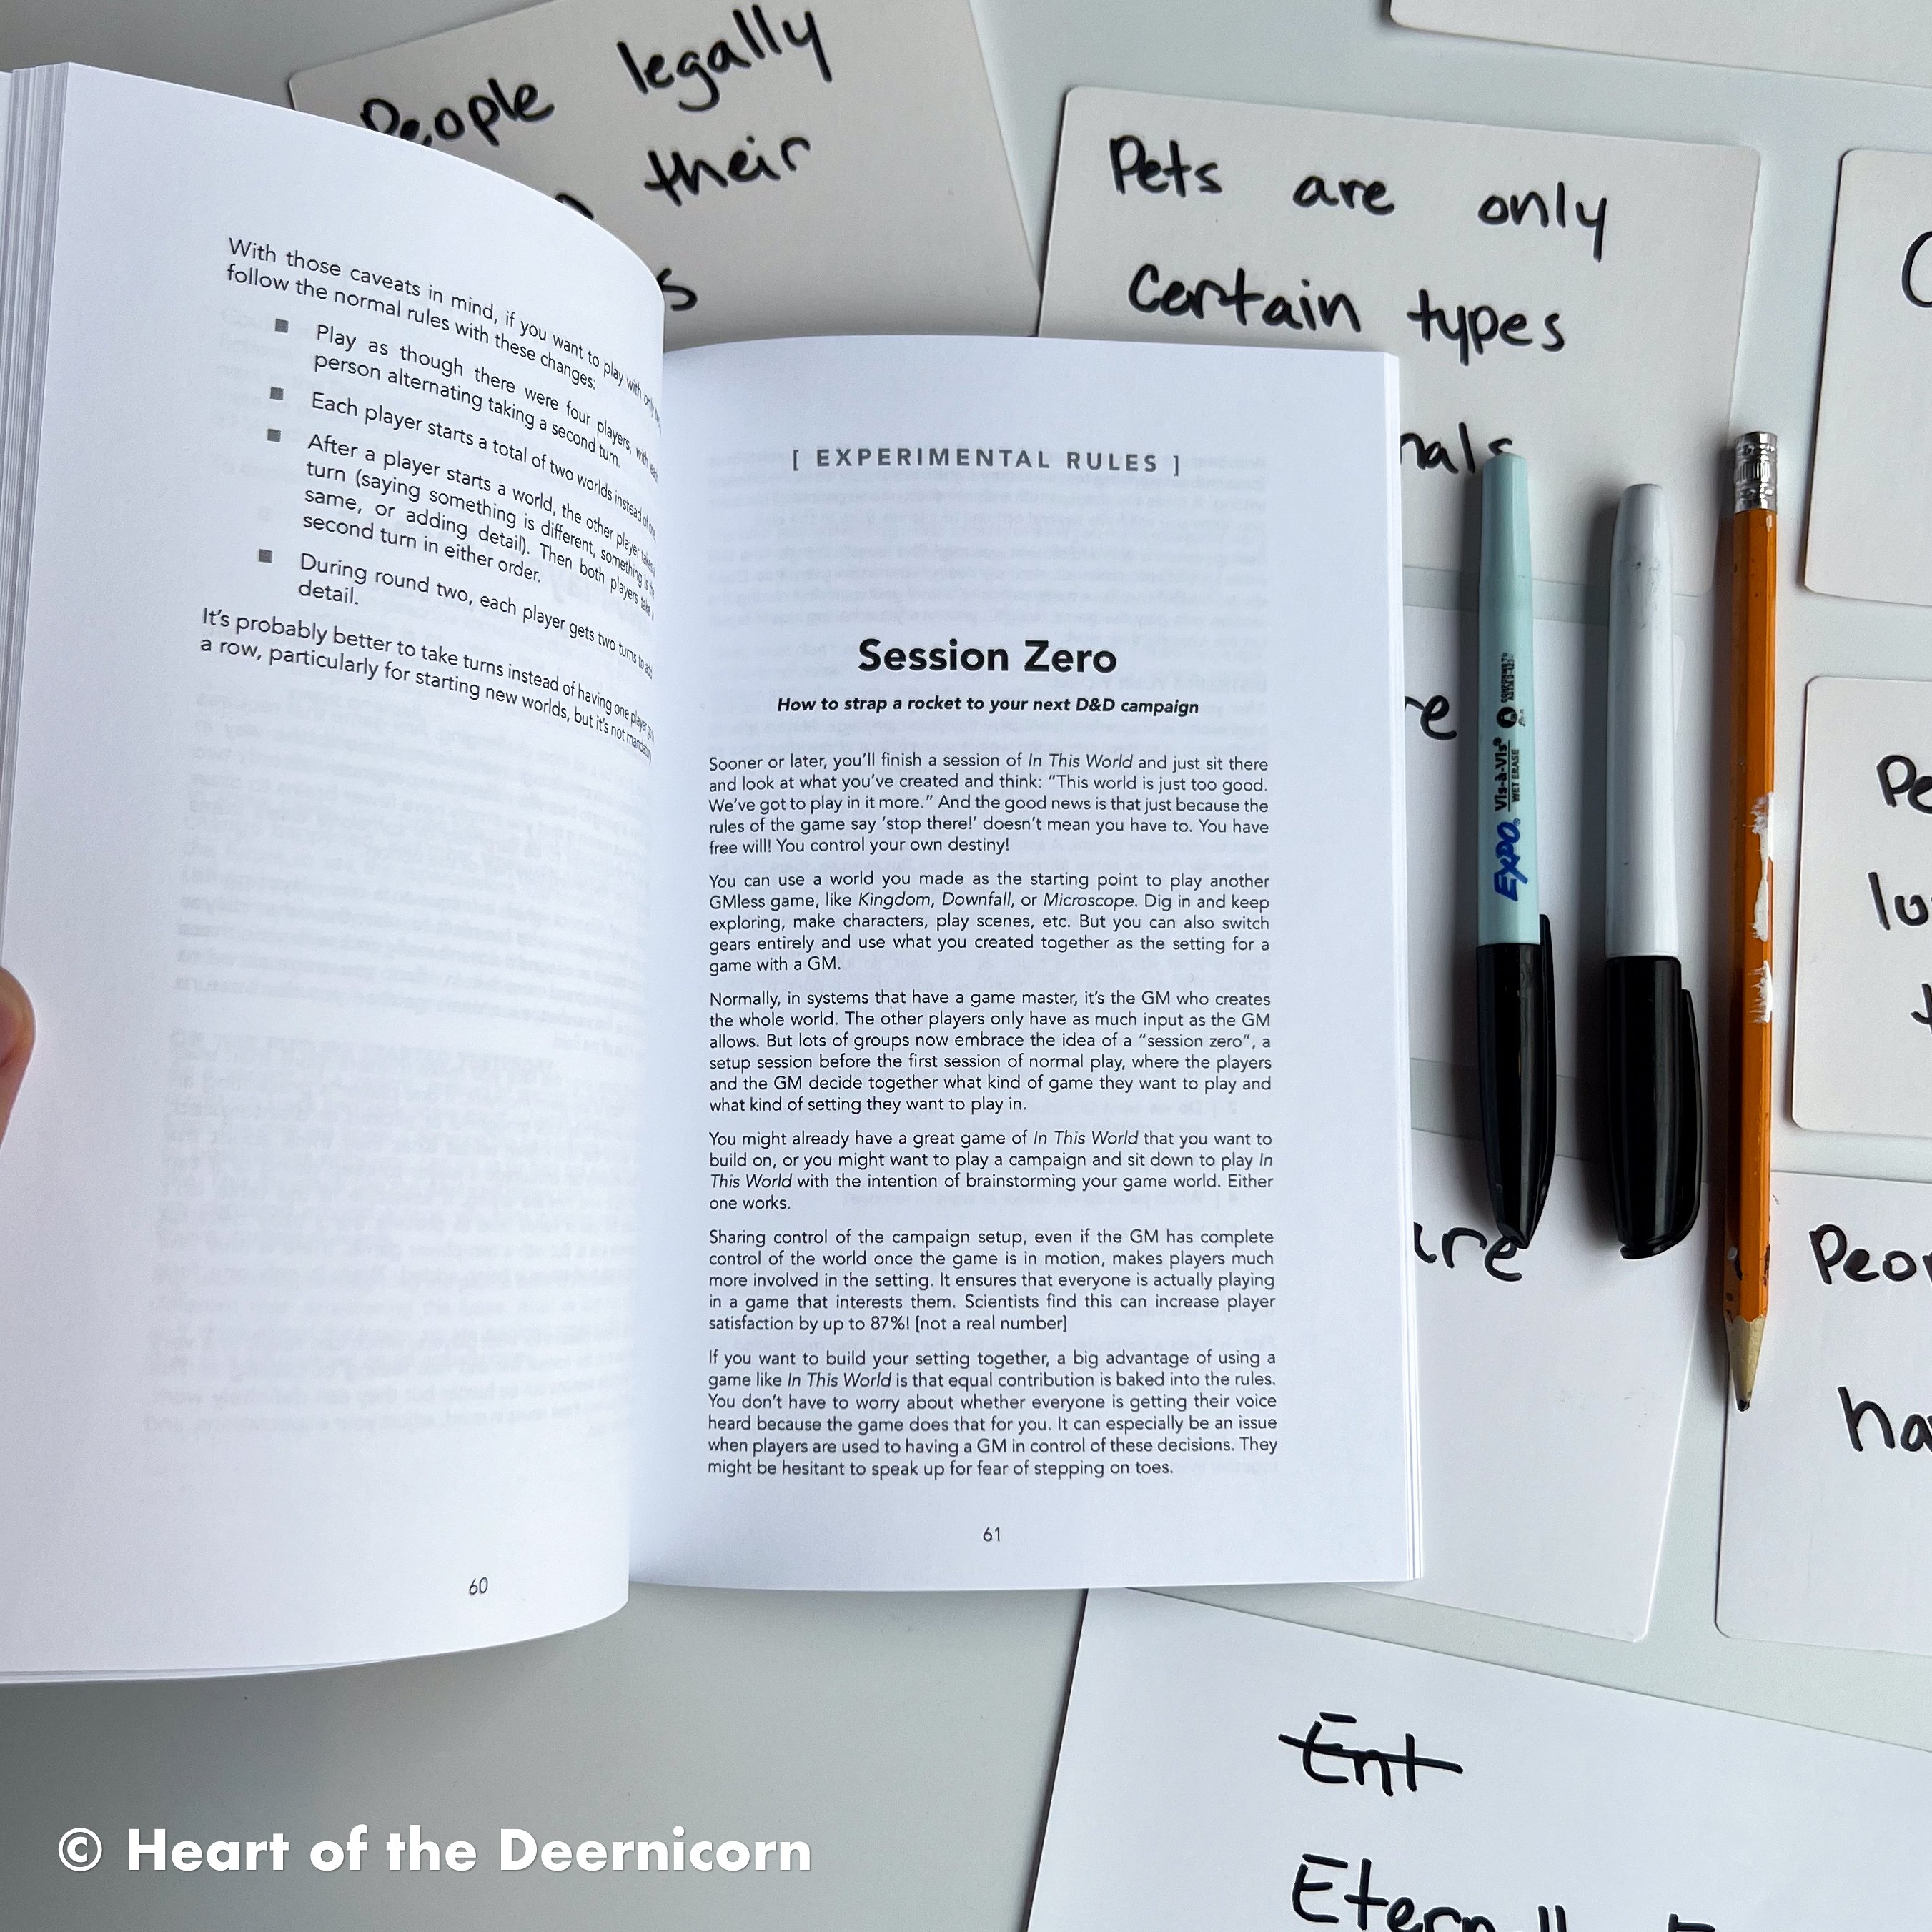 People legally
their
Pets are only
Certain types
With those caveats in mind, if you want to play with only
follow the normal rules with these changes:
■ Play as though there were four players, with each
person alternating taking a second turn.
■ Each player starts a total of two worlds instead of one.
■ After a player starts a world, the other player takes a
turn (saying something is different, something is the
same, or adding detail). Then both players take a
second turn in either order.
■ During round two, each player gets two turns to add
detail.
It's probably better to take turns instead of having one player go
a row, particularly for starting new worlds, but it's not mandatory
60
[ EXPERIMENTAL RULES ]
Session Zero
How to strap a rocket to your next D&D campaign
Sooner or later, you'll finish a session of In This World and just sit there
and look at what you've created and think: "This world is just too good.
We've got to play in it more." And the good news is that just because the
rules of the game say 'stop there!' doesn't mean you have to. You have
free will! You control your own destiny!
You can use a world you made as the starting point to play another
GMless game, like Kingdom, Downfall, or Microscope. Dig in and keep
exploring, make characters, play scenes, etc. But you can also switch
gears entirely and use what you created together as the setting for a
game with a GM.
Normally, in systems that have a game master, it's the GM who creates
the whole world. The other players only have as much input as the GM
allows. But lots of groups now embrace the idea of a "session zero", a
setup session before the first session of normal play, where the players
and the GM decide together what kind of game they want to play and
what kind of setting they want to play in.
You might already have a great game of In This World that you want to
build on, or you might want to play a campaign and sit down to play In
This World with the intention of brainstorming your game world. Either
one works.
Sharing control of the campaign setup, even if the GM has complete
control of the world once the game is in motion, makes players much
more involved in the setting. It ensures that everyone is actually playing
in a game that interests them. Scientists find this can increase player
satisfaction by up to 87%! [not a real number]
If you want to build your setting together, a big advantage of using a
game like In This World is that equal contribution is baked into the rules.
You don't have to worry about whether everyone is getting their voice
heard because the game does that for you. It can especially be an issue
when players are used to having a GM in control of these decisions. They
might be hesitant to speak up for fear of stepping on toes.
61
EXPO. Vis-à-Vis®
WET ERASE
Ent
© Heart of the Deernicorn